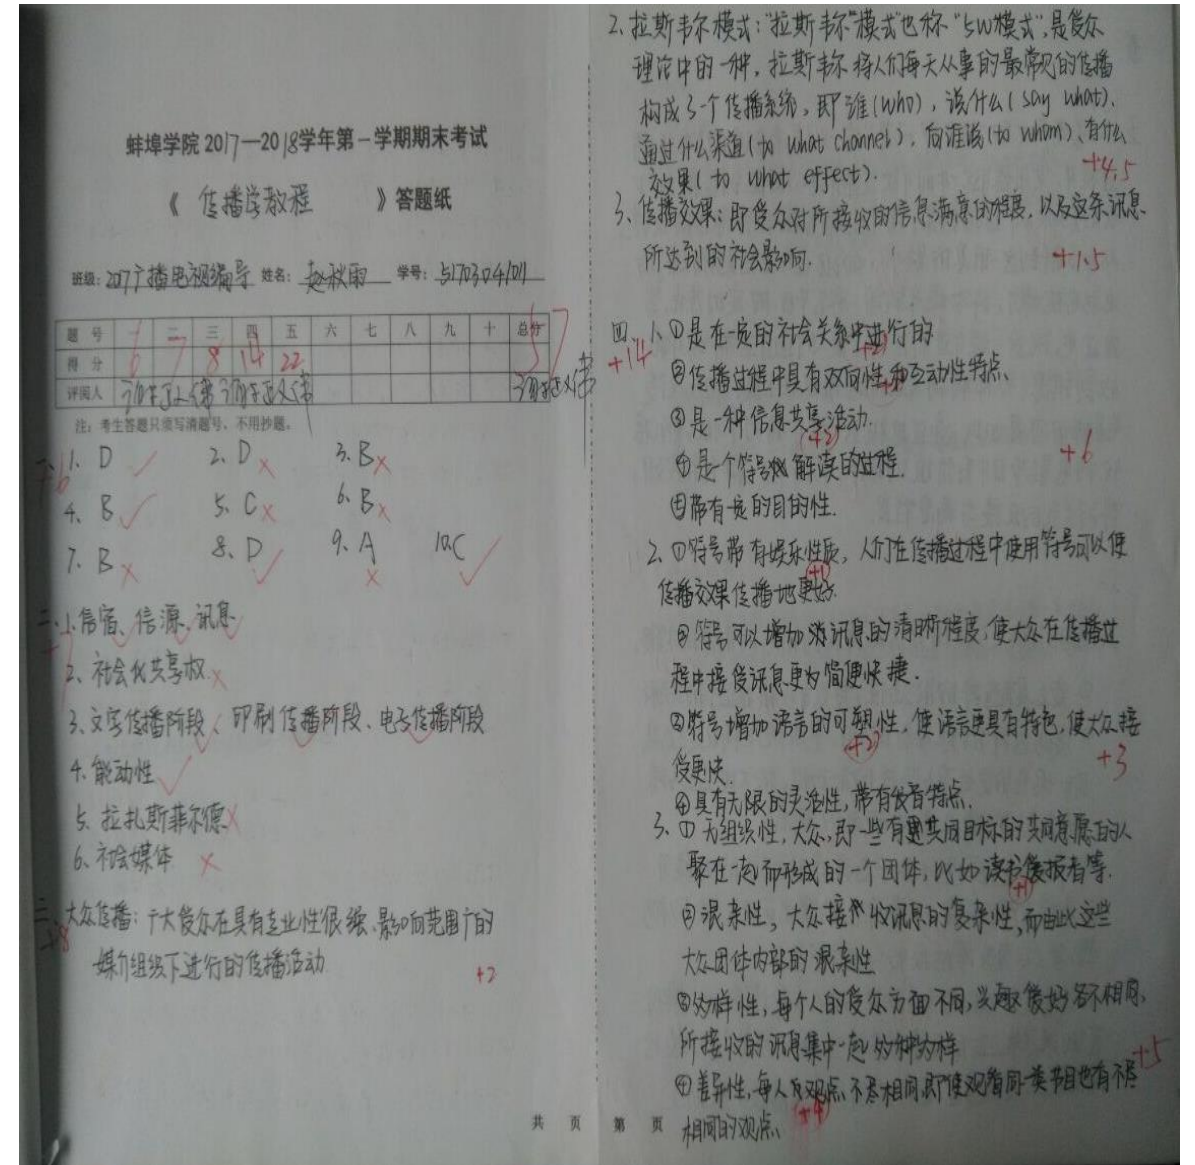 蚌埠学院 2017—2018学年第一学期期末考试
《 传播学教程 》答题纸
班级：2017广播电视编导 姓名：赵秋雨 学号：51703041011
题 号 一 二 三 四 五 六 七 八 九 十 总分
得 分 6 7 8 14 22 57
评阅人
注：考生答题只须写清题号，不用抄题。
+6
一、1. D 2. D 3. B
4. B 5. C 6. B
7. B 8. D 9. A 10. C
二、1.信宿、信源、讯息
2、社会化共享权
3、文字传播阶段、印刷传播阶段、电子传播阶段
4、能动性
5、拉扎斯菲尔德
6、社会媒体
三、大众传播：广大受众在具有专业性很强、影响范围广的
+8
媒介组织下进行的传播活动
+2
2、拉斯韦尔模式："拉斯韦尔"模式"也称"5W模式"，是受众
理论中的一种，拉斯韦尔将人们每天从事的最常见的传播
构成了一个传播系统，即谁(who)，说什么(say what)、
通过什么渠道(to what channel)，向谁说(to whom)、有什么
效果(to what effect).
+4.5
3、传播效果：即受众对所接收的信息满意的程度，以及这条讯息
所达到的社会影响.
+1.5
四、1、①是在一定的社会关系中进行的
+14
②传播过程中具有双向性和互动性特点、
③是一种信息共享活动
④是个符号 解读的过程.
+6
⑤带有一定的目的性.
2、①符号带有娱乐性质，人们在传播过程中使用符号可以使
传播效果传播地更好.
②符号可以增加 讯息的清晰程度，使大众在传播过
程中接受讯息更为简便快捷.
③符号增加语言的可塑性，使语言更具有特色，使大众接
受更快.
+3
④具有无限的灵活性，带有发音特点.
3、①无组织性，大众，即一些有着共同目标的共同意愿的人
聚在一起而形成的一个团体，比如读书会 报者等.
②混杂性，大众接 收讯息的复杂性，而由此这些
大众团体内部的混杂性
③多样性，每个人的受众方面不同，兴趣爱好各不相同，
所接收的讯息集中一起 多种多样
+5
④差异性，每人 观点不尽相同，即使观看同一类节目也有不尽
相同的观点、
共 页 第 页